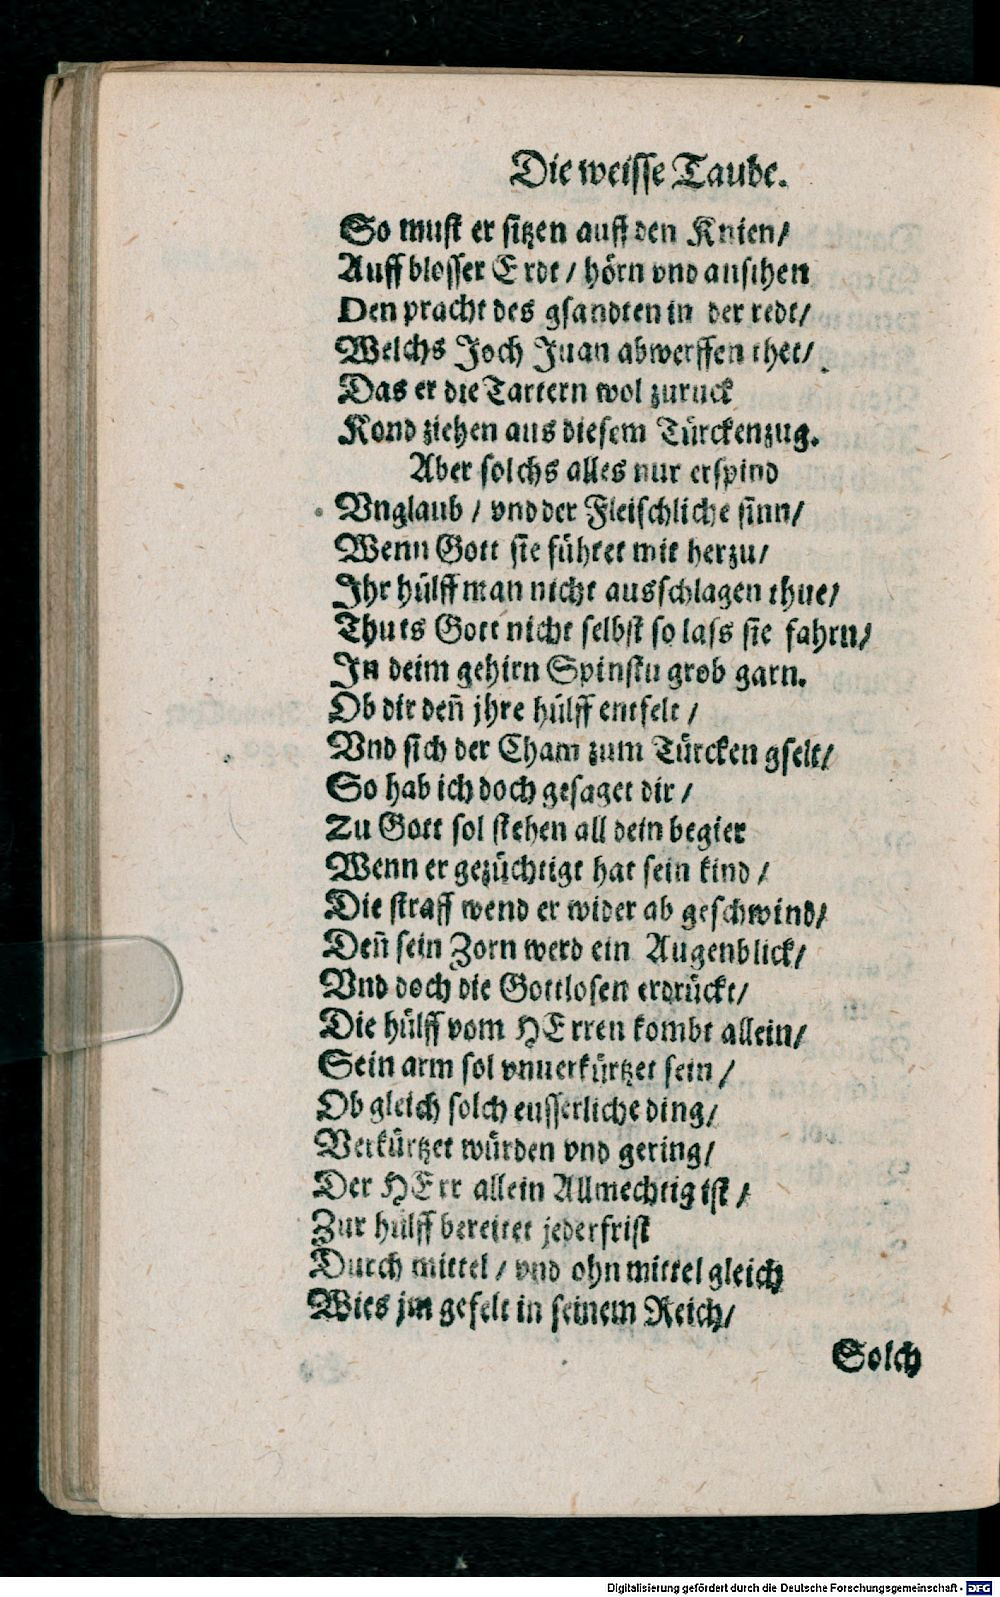 Die weisse Taube.
So must er sitzen auff den Knien/
Auff blosser Erdt / hörn vnd ansihen
Den pracht des gsandten in der redt/
Welchs Joch Juan abwerffen thet/
Das er die Tartern wol zuruck
Kond ziehen aus diesem Türckenzug.
Aber solchs alles nur erspind
Vnglaub / vnd der Fleischliche sinn/
Wenn Gott sie führet mit herzu/
Ihr hülff man nicht ausschlagen thue/
Thuts Gott nicht selbst so lass sie fahrn/
In deim gehirn Spinstu grob garn.
Ob dir deñ jhre hülff entfelt /
Vnd sich der Cham zum Türcken gselt/
So hab ich doch gesaget dir /
Zu Gott sol stehen all dein begier
Wenn er gezüchtigt hat sein kind /
Die straff wend er wider ab geschwind/
Deñ sein Zorn werd ein Augenblick/
Vnd doch die Gottlosen erdrückt/
Die hülff vom HErren kombt allein/
Sein arm sol vnuerkürtzet sein /
Ob gleich solch eusserliche ding/
Verkürtzet würden vnd gering/
Der HErr allein Allmechtig ist /
Zur hülff bereitet jederfrist
Durch mittel / vnd ohn mittel gleich
Wies jm gefelt in seinem Reich/
Solch
Digitalisierung gefördert durch die Deutsche Forschungsgemeinschaft - DFG